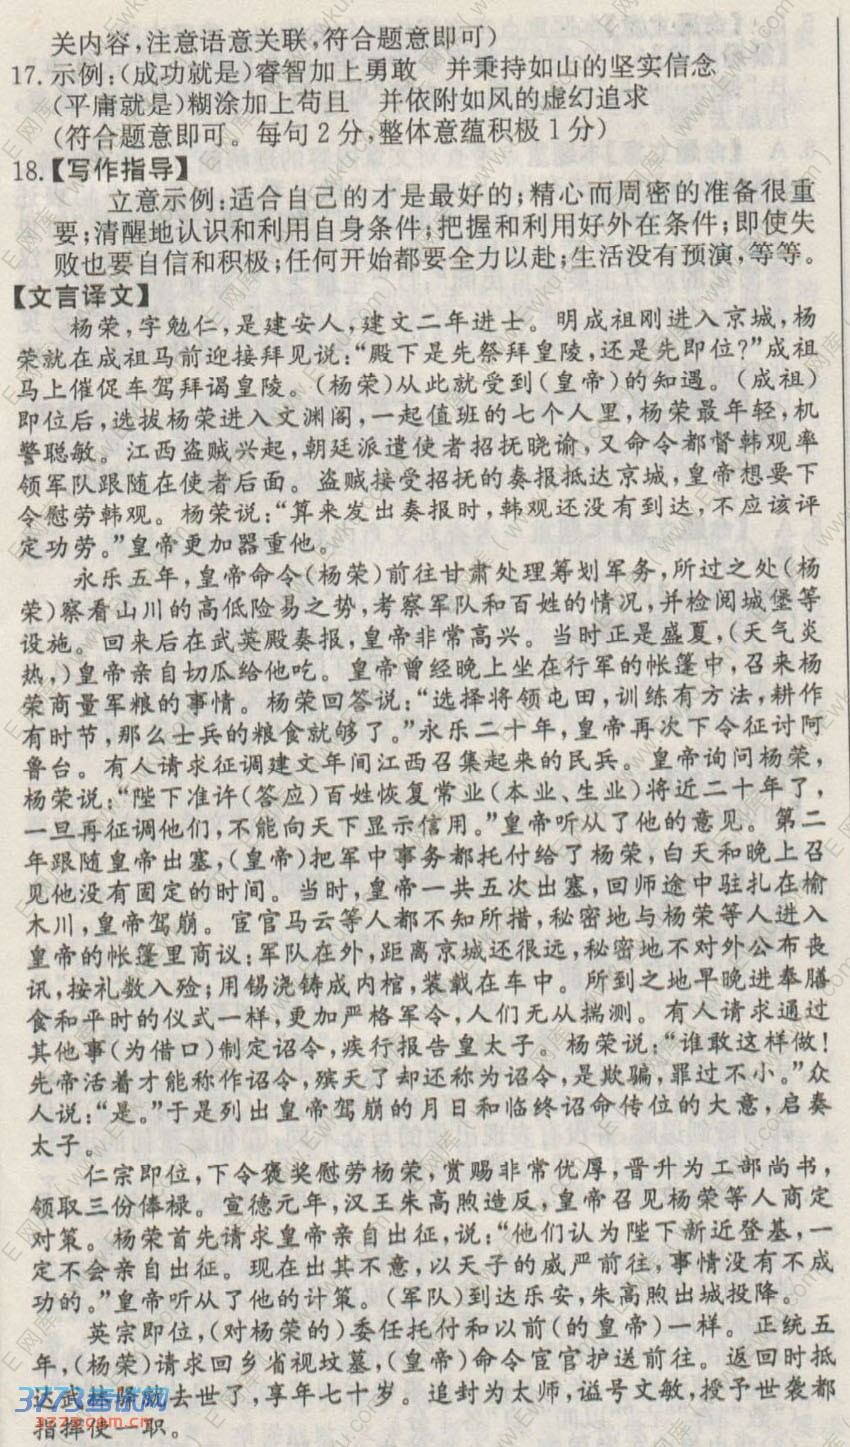 关内容,注意语意关联,符合题意即可)
17. 示例:(成功就是)睿智加上勇敢　并秉持如山的坚实信念
(平庸就是)糊涂加上苟且　并依附如风的虚幻追求
(符合题意即可。每句2分,整体意蕴积极1分)
18.【写作指导】
立意示例:适合自己的才是最好的;精心而周密的准备很重
要;清醒地认识和利用自身条件;把握和利用好外在条件;即使失
败也要自信和积极;任何开始都要全力以赴;生活没有预演,等等。
【文言译文】
杨荣,字勉仁,是建安人,建文二年进士。明成祖刚进入京城,杨
荣就在成祖马前迎接拜见说:“殿下是先祭拜皇陵,还是先即位?”成祖
马上催促车驾拜谒皇陵。(杨荣)从此就受到(皇帝)的知遇。(成祖)
即位后,选拔杨荣进入文渊阁,一起值班的七个人里,杨荣最年轻,机
警聪敏。江西盗贼兴起,朝廷派遣使者招抚晓谕,又命令都督韩观率
领军队跟随在使者后面。盗贼接受招抚的奏报抵达京城,皇帝想要下
令慰劳韩观。杨荣说:“算来发出奏报时,韩观还没有到达,不应该评
定功劳。”皇帝更加器重他。
永乐五年,皇帝命令(杨荣)前往甘肃处理筹划军务,所过之处(杨
荣)察看山川的高低险易之势,考察军队和百姓的情况,并检阅城堡等
设施。回来后在武英殿奏报,皇帝非常高兴。当时正是盛夏,(天气炎
热,)皇帝亲自切瓜给他吃。皇帝曾经晚上坐在行军的帐篷中,召来杨
荣商量军粮的事情。杨荣回答说:“选择将领屯田,训练有方法,耕作
有时节,那么士兵的粮食就够了。”永乐二十年,皇帝再次下令征讨阿
鲁台。有人请求征调建文年间江西召集起来的民兵。皇帝询问杨荣,
杨荣说:“陛下准许(答应)百姓恢复常业(本业、生业)将近二十年了,
一旦再征调他们,不能向天下显示信用。”皇帝听从了他的意见。第二
年跟随皇帝出塞,(皇帝)把军中事务都托付给了杨荣,白天和晚上召
见他没有固定的时间。当时,皇帝一共五次出塞,回师途中驻扎在榆
木川,皇帝驾崩。宦官马云等人都不知所措,秘密地与杨荣等人进入
皇帝的帐篷里商议:军队在外,距离京城还很远,秘密地不对外公布丧
讯,按礼数入殓;用锡浇铸成内棺,装载在车中。所到之地早晚进奉膳
食和平时的仪式一样,更加严格军令,人们无从揣测。有人请求通过
其他事(为借口)制定诏令,疾行报告皇太子。杨荣说:“谁敢这样做!
先帝活着才能称作诏令,殡天了却还称为诏令,是欺骗,罪过不小。”众
人说:“是。”于是列出皇帝驾崩的月日和临终诏命传位的大意,启奏
太子。
仁宗即位,下令褒奖慰劳杨荣,赏赐非常优厚,晋升为工部尚书,
领取三份俸禄。宣德元年,汉王朱高煦造反,皇帝召见杨荣等人商定
对策。杨荣首先请求皇帝亲自出征,说:“他们认为陛下新近登基,一
定不会亲自出征。现在出其不意,以天子的威严前往,事情没有不成
功的。”皇帝听从了他的计策。(军队)到达乐安,朱高煦出城投降。
英宗即位,(对杨荣的)委任托付和以前(的皇帝)一样。正统五
年,(杨荣)请求回乡省视坟墓,(皇帝)命令宦官护送前往。返回时抵
达武林驿就去世了,享年七十岁。追封为太师,谥号文敏,授予世袭都
指挥使一职。
3773考试网
3773.com.cn
E网库(www.Ewku.com)